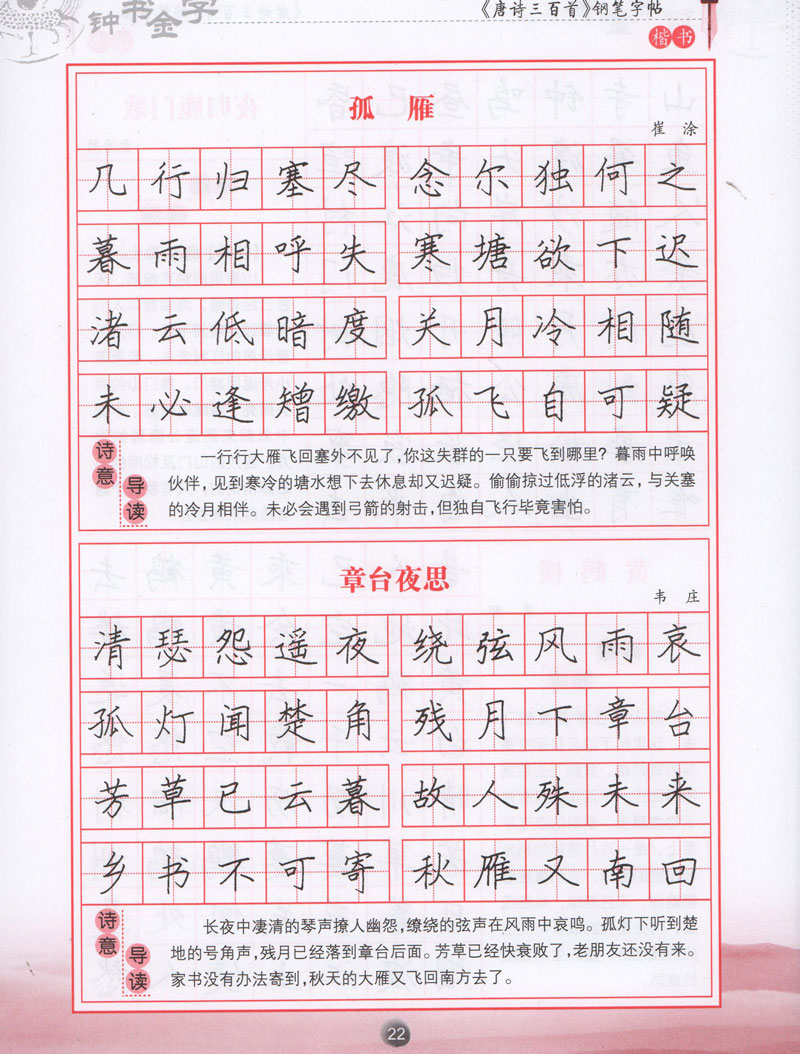 钟书金字
《唐诗三百首》钢笔字帖
楷书
孤雁
崔涂
几行归塞尽 念尔独何之
暮雨相呼失 寒塘欲下迟
渚云低暗度 关月冷相随
未必逢矰缴 孤飞自可疑
诗意导读
一行行大雁飞回塞外不见了，你这失群的一只要飞到哪里？暮雨中呼唤
伙伴，见到寒冷的塘水想下去休息却又迟疑。偷偷掠过低浮的渚云，与关塞
的冷月相伴。未必会遇到弓箭的射击，但独自飞行毕竟害怕。
章台夜思
韦庄
清瑟怨遥夜 绕弦风雨哀
孤灯闻楚角 残月下章台
芳草已云暮 故人殊未来
乡书不可寄 秋雁又南回
诗意导读
长夜中凄清的琴声撩人幽怨，缭绕的弦声在风雨中哀鸣。孤灯下听到楚
地的号角声，残月已经落到章台后面。芳草已经快衰败了，老朋友还没有来。
家书没有办法寄到，秋天的大雁又飞回南方去了。
22